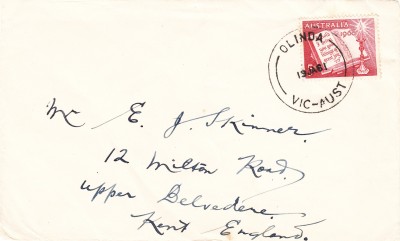 OLINDA
19 JA 61
VIC-AUST
AUSTRALIA
1960
Mr E. J. Skinner.
12 Milton Road.
Upper Belvedere.
Kent England.